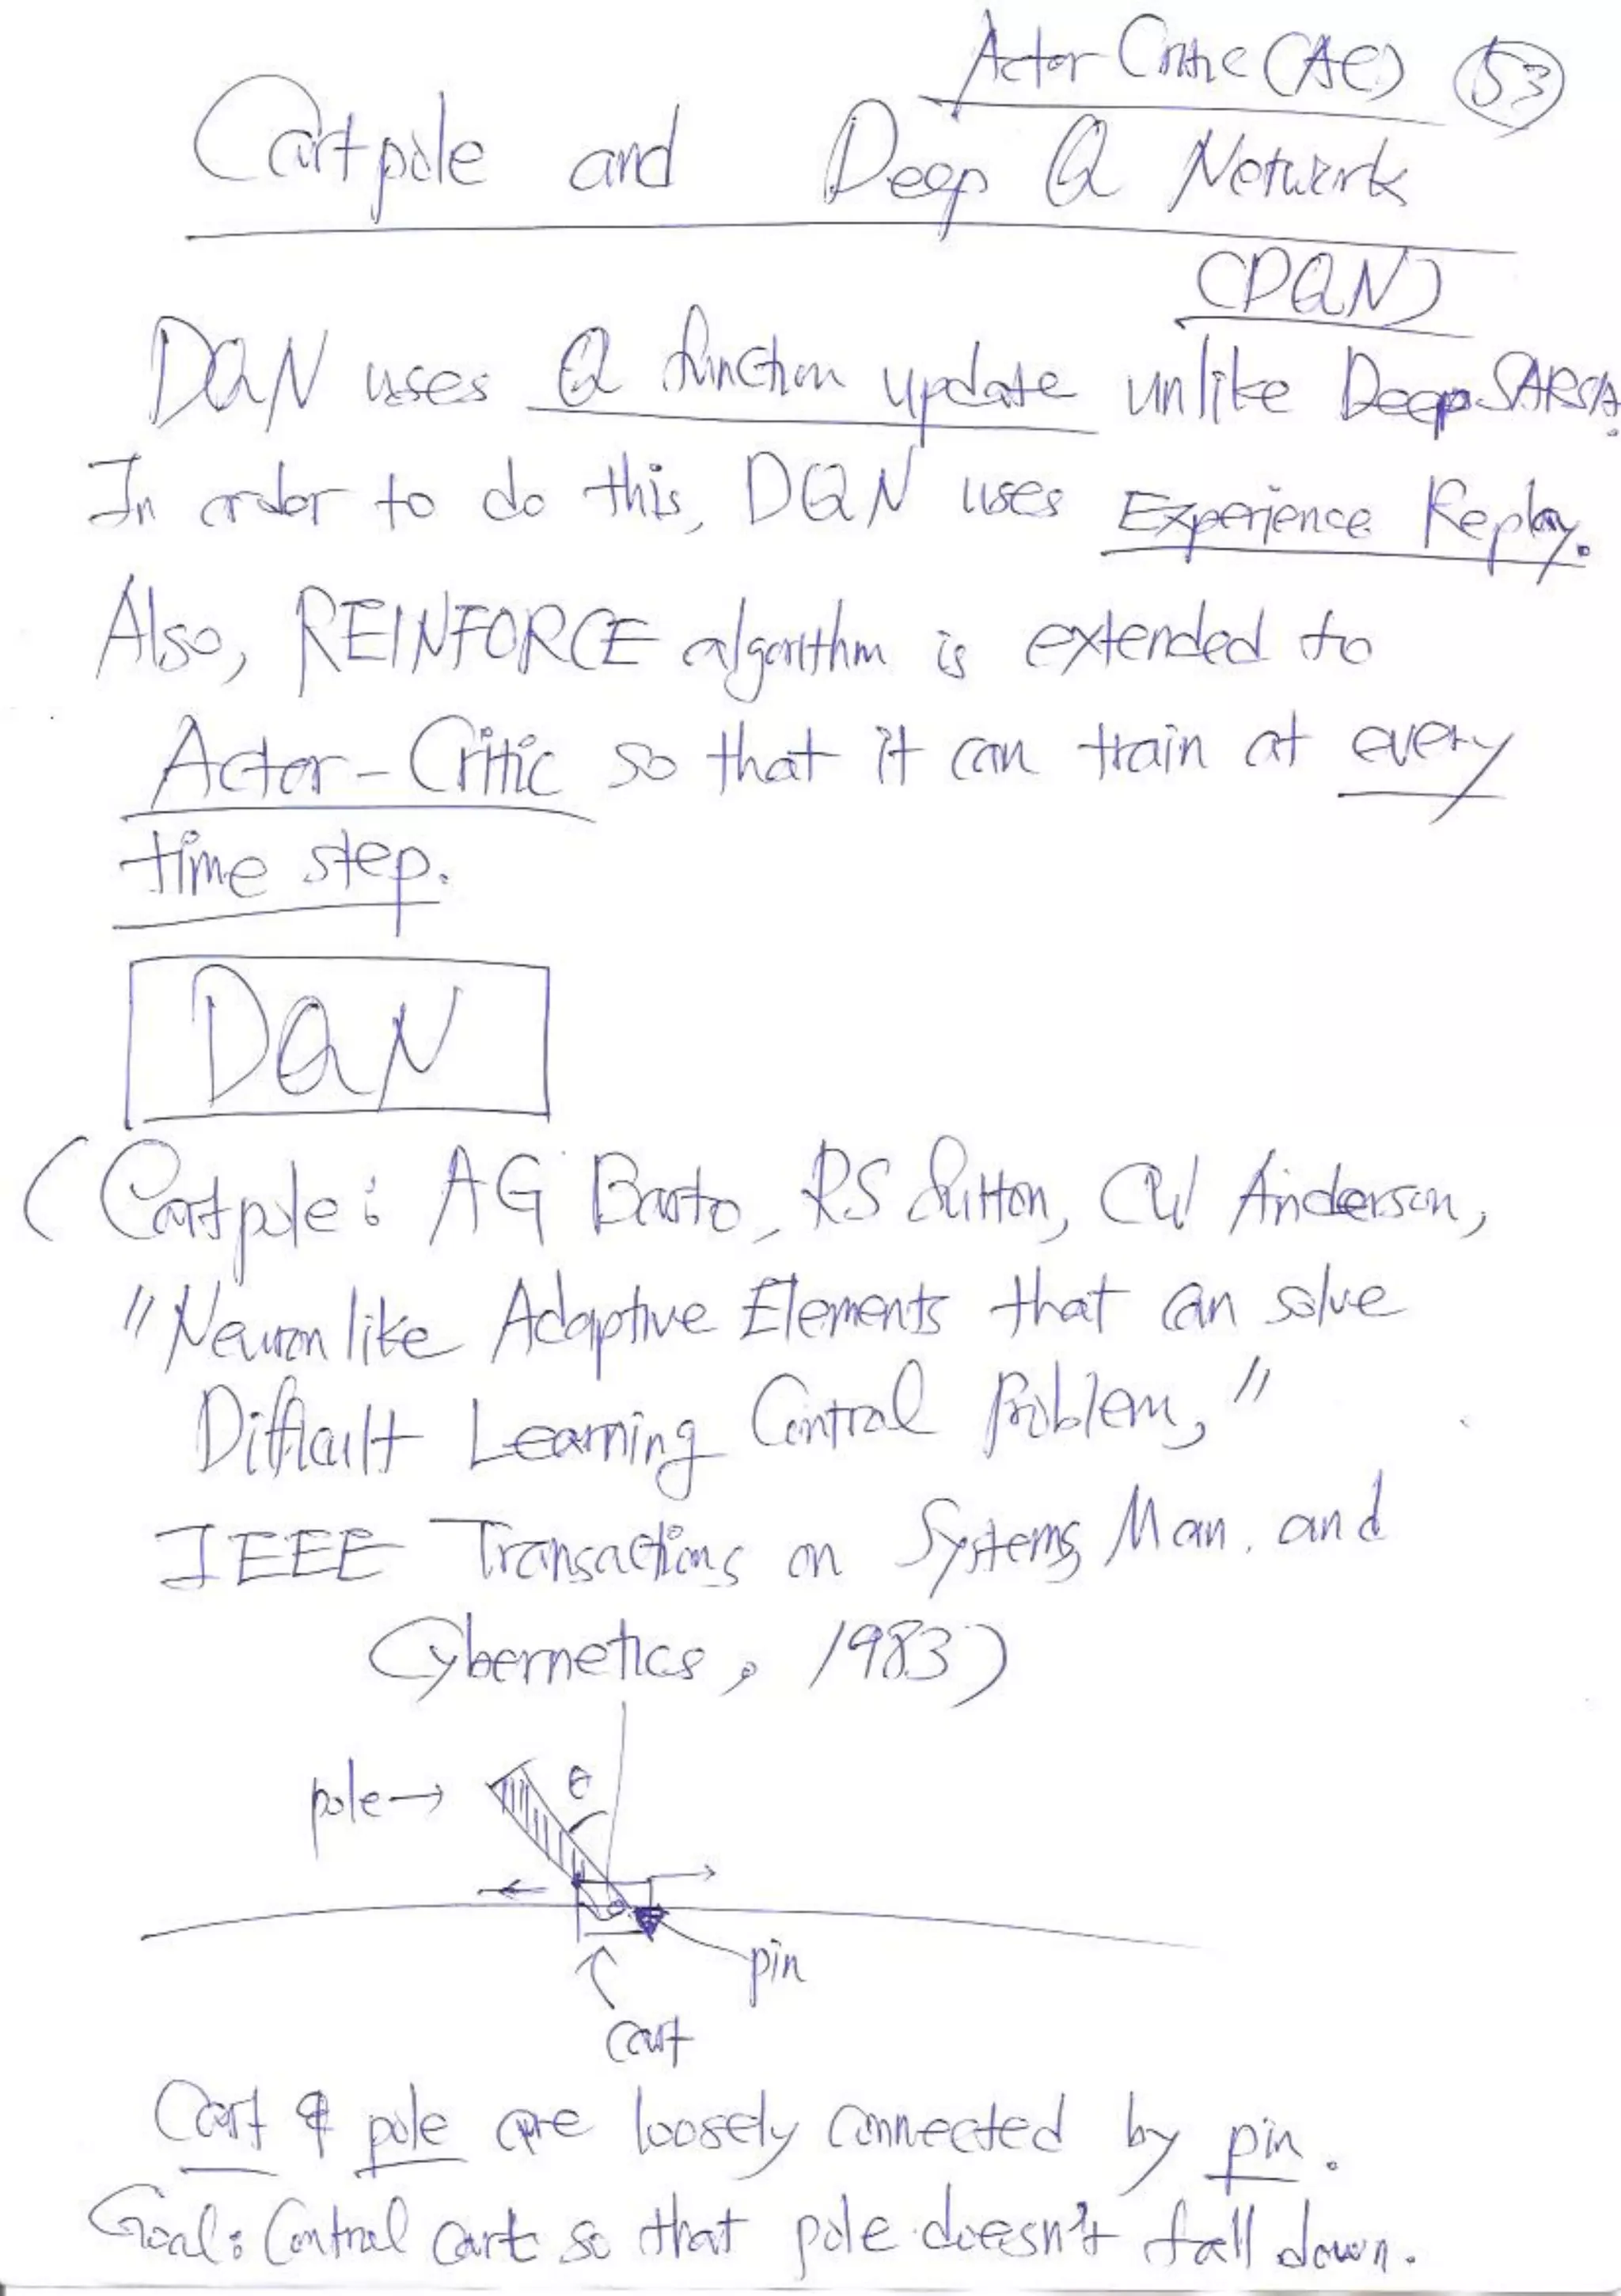 Actor Critic (AC) 53
Cartpole and Deep Q Network
(DQN)
DQN uses Q function update unlike DeepSARSA.
In order to do this, DQN uses Experience Replay.
Also, REINFORCE algorithm is extended to
Actor-Critic so that it can train at every
time step.
DQN
(Cartpole: AG Barto, RS Sutton, CW Anderson,
"Neuronlike Adaptive Elements that can solve
Difficult Learning Control Problem,"
IEEE Transactions on Systems, Man, and
Cybernetics, 1983)
pole→ θ
pin
cart
Cart & pole are loosely connected by pin.
Goal: Control cart so that pole doesn't fall down.